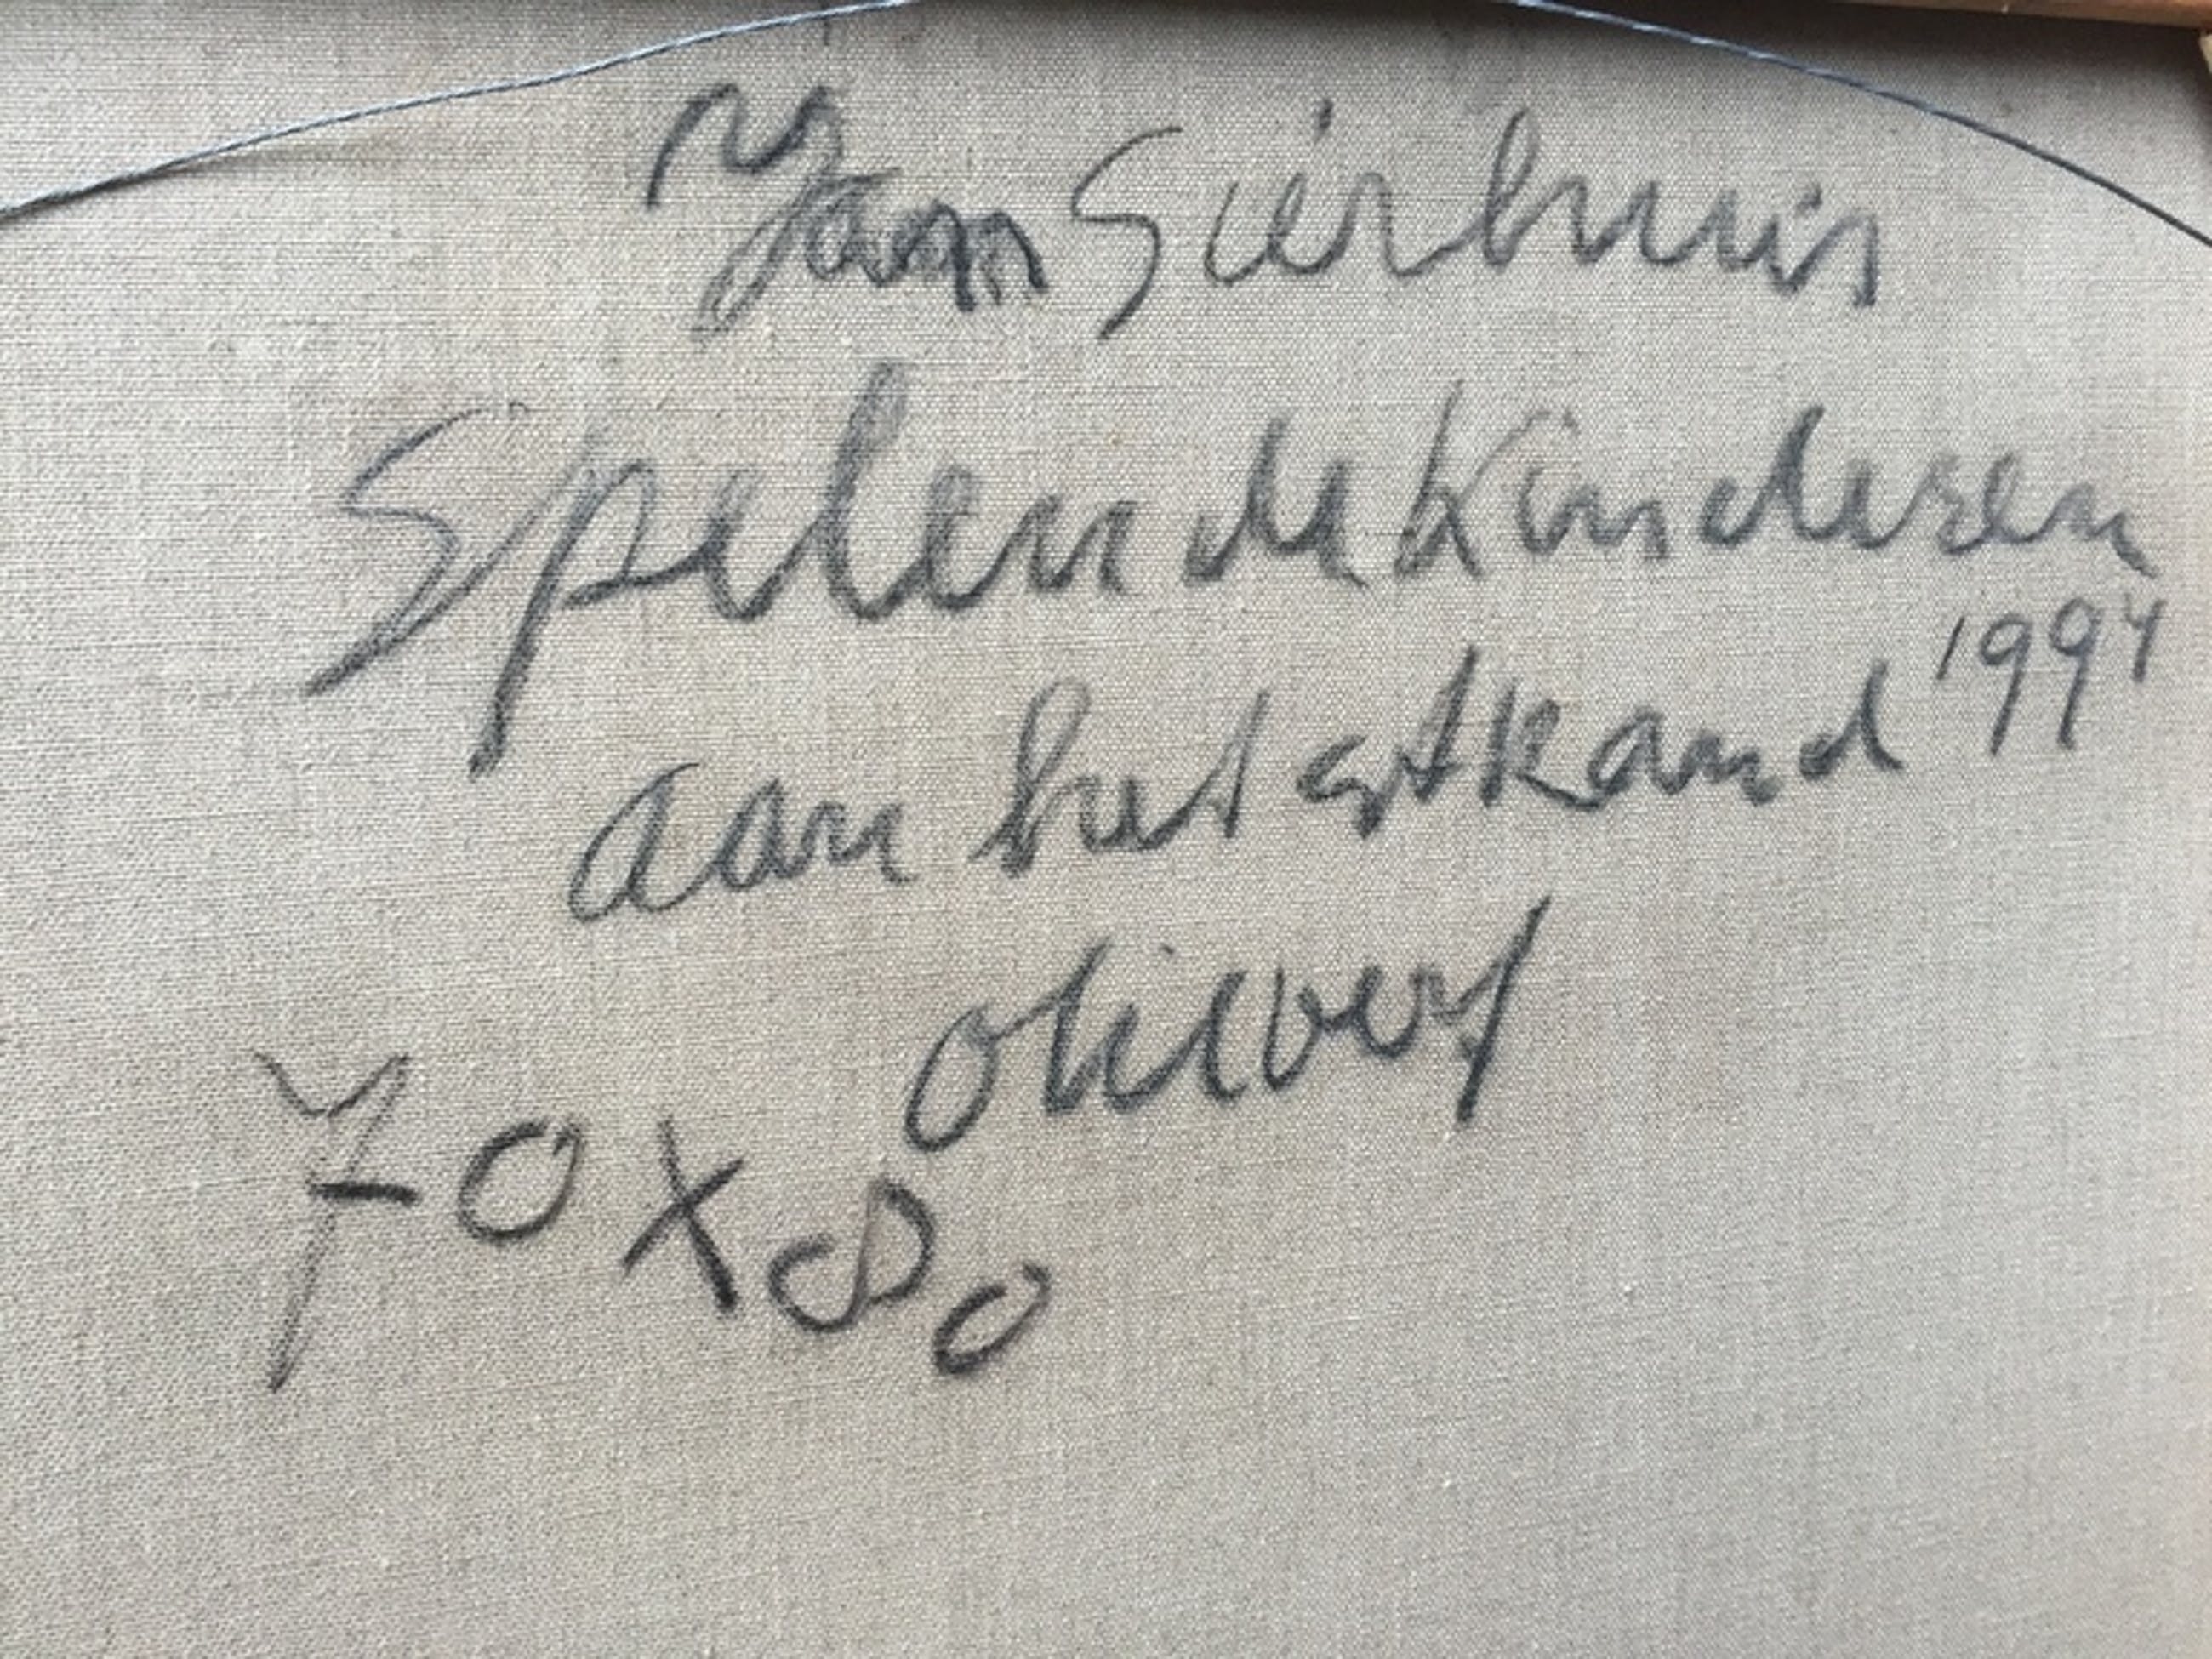 Jan Sierhuis
Spelende Kinderen
1994
aan het stRand
olieverf
70 x 80